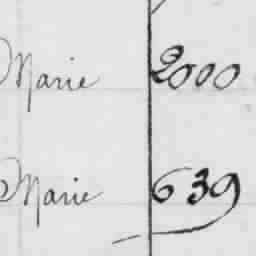 Marie 2000
Marie 639